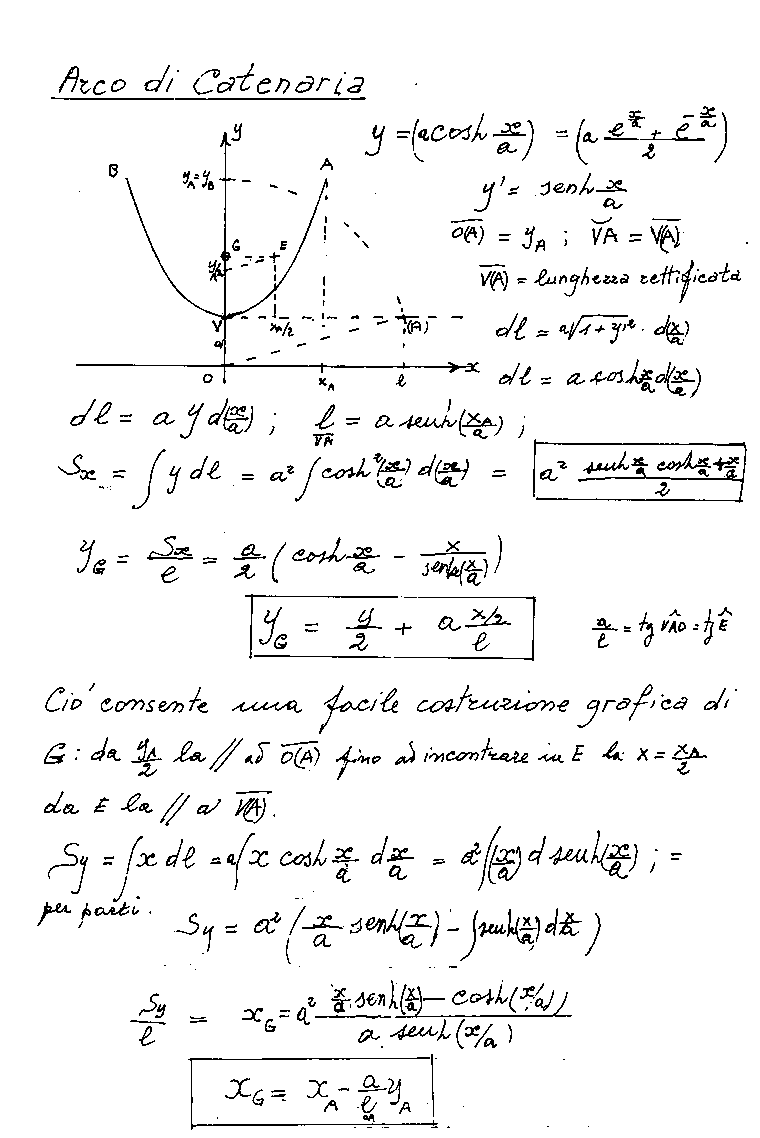 Arco di Catenaria
y = (a cosh x/a) = (a (e^(x/a) + e^(-x/a))/2)
y' = senh x/a
O(A) = y_A ; VA = V(A)
V(A) = lunghezza rettificata
dl = a√(1+y'²) · d(x/a)
dl = a cosh x/a d(x/a)
y
B
A
y_A = y_B
G
E
y_A/2
V
x_A/2
(A)
a
O
x_A
l
x
dl = a y d(x/a) ; l_VA = a senh(x_A/a) ;
Sx = ∫ y dl = a² ∫ cosh²(x/a) d(x/a) = a² (senh x/a cosh x/a + x/a)/2
y_G = Sx/l = a/2 (cosh x/a - x/senh(x/a))
y_G = y/2 + a (x/2)/l
a/l = tg VÂO = tg Ê
Ciò consente una facile costruzione grafica di
G : da y_A/2 la // ad O(A) fino ad incontrare in E la x = x_A/2
da E la // a V(A).
Sy = ∫ x dl = a∫ x cosh x/a d x/a = a²∫(x/a) d senh(x/a) ; =
per parti.
Sy = a² (x/a senh(x/a) - ∫senh(x/a) d x/a)
Sy/l = x_G = a² (x/a senh(x/a) - cosh(x/a))/(a senh(x/a))
x_G = x_A - a/l y_A